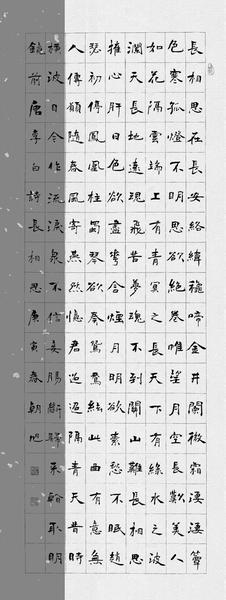 長相思在長安絡緯穐啼金井闌微霜淒淒簟
色寒孤燈不明思欲絕卷帷望月空長歎美人
如花隔雲端上有青冥之長天下有綠水之波
瀾天長地遠魂飛苦夢魂不到關山難長相思
摧心肝日色欲盡華含煙月明欲素愁不眠趙
瑟初停鳳凰柱蜀琴欲奏鴛鴦絃此曲有意無
人傳願隨春風寄燕然憶君迢迢隔青天昔時
橫波目今作流淚泉不信妾腸斷歸來看取明
鏡前唐李白詩長相思庚寅春朝旭